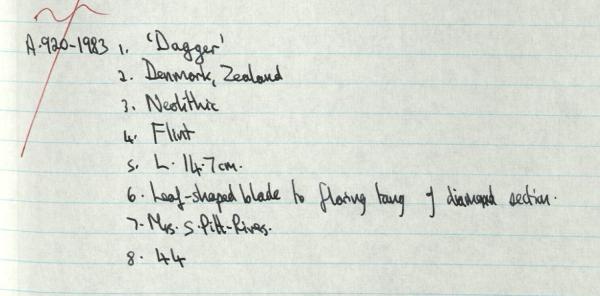 A.920-1983 1. 'Dagger'
2. Denmark, Zealand
3. Neolithic
4. Flint
5. L. 14.7cm.
6. Leaf-shaped blade to flaring tang of diamond section.
7. Mrs. S. Pitt-Rivers.
8. 44